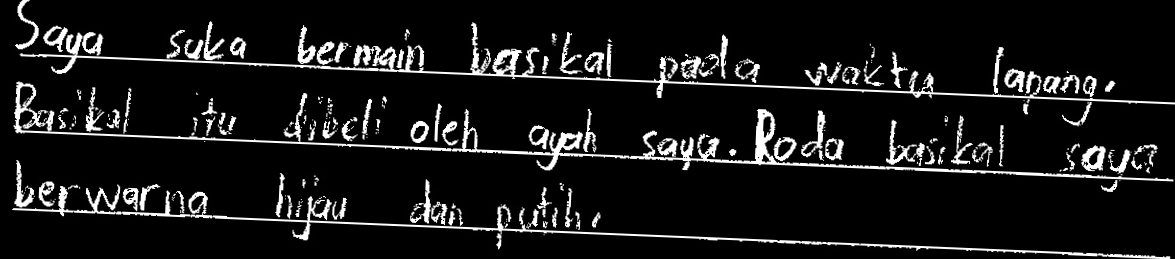 Saya suka bermain basikal pada waktu lapang.
Basikal itu dibeli oleh ayah saya. Roda basikal saya
berwarna hijau dan putih.